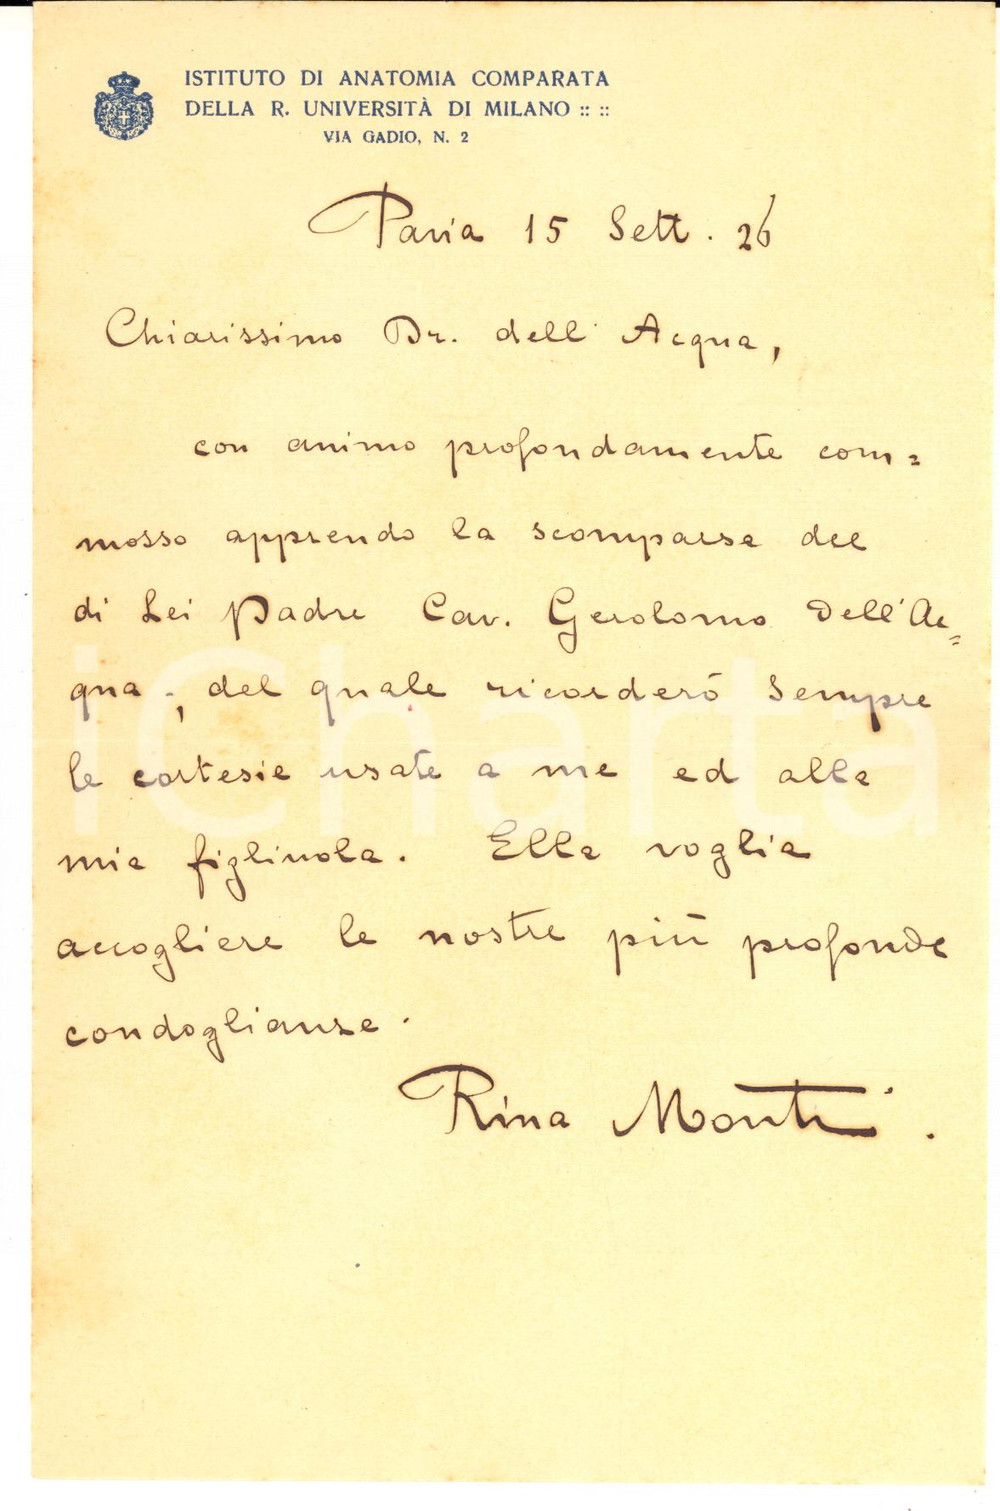 ISTITUTO DI ANATOMIA COMPARATA
DELLA R. UNIVERSITÀ DI MILANO :: ::
VIA GADIO, N. 2
Pavia 15 Sett. 26
Chiarissimo Dr. dell' Acqua,
con animo profondamente com=
mosso apprendo la scomparsa del
di Lei Padre Cav. Gerolomo Dell'Ac=
qua, del quale ricorderò sempre
le cortesie usate a me ed alla
mia figliuola. Ella voglia
accogliere le nostre più profonde
condoglianze.
Rina Monti.
iCharta